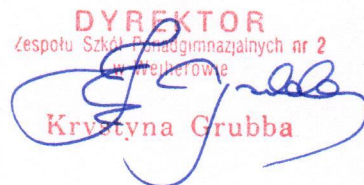 DYREKTOR
Zespołu Szkół Ponadgimnazjalnych nr 2
w Wejherowie
Krystyna Grubba